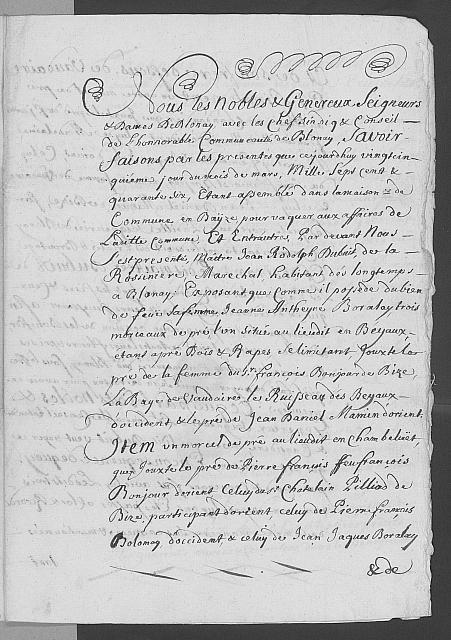 Nous les Nobles & Genereux Seigneurs
& Dames De Blonay, avec les Chefs & Conseil
de L'honnorable Communeauté de Blonay, Savoir
faisons par les presentes que cejourdhuy vingtcin
quieme jour du mois de mars, Mille Sept Cent &
quarante Six, Etant assemblé dans la maison de
Commune en Baÿze pour vaquer aux affaires de
Laditte Commune, Et Entrautres, Par devant Nous
S'est presenté, Maître Jean Rodolph Dubuit, de la
Rossiniere, Marechal habitant dès longtemps
a Blonay; Exposant que Comme il possede du bien
de feüe sa femme Jeanne Antheyne Boralay trois
morceaux de pré l'un Situé au lieudit en Beyaux
etans apré Bois & Rapes Se limitant Jouxte la
pré de la femme du Sr. françois Bonjour de Bize,
La Baye de Vaudaire les Ruisseau des Beyaux
d'occident & le pré de Jean Daniel Mamin d'orient.
Item un morcel de pré au lieudit en Chambeliëct,
que Jouxte le pré de Pierre françois ffeu françois
Bonjour d'orient Celuy du Sr. Chatelain Pilliod de
Bize, participant d'orient celuy de Pierre françois
Bolomey d'occident & celuy de Jean Jaques Boralay
& de